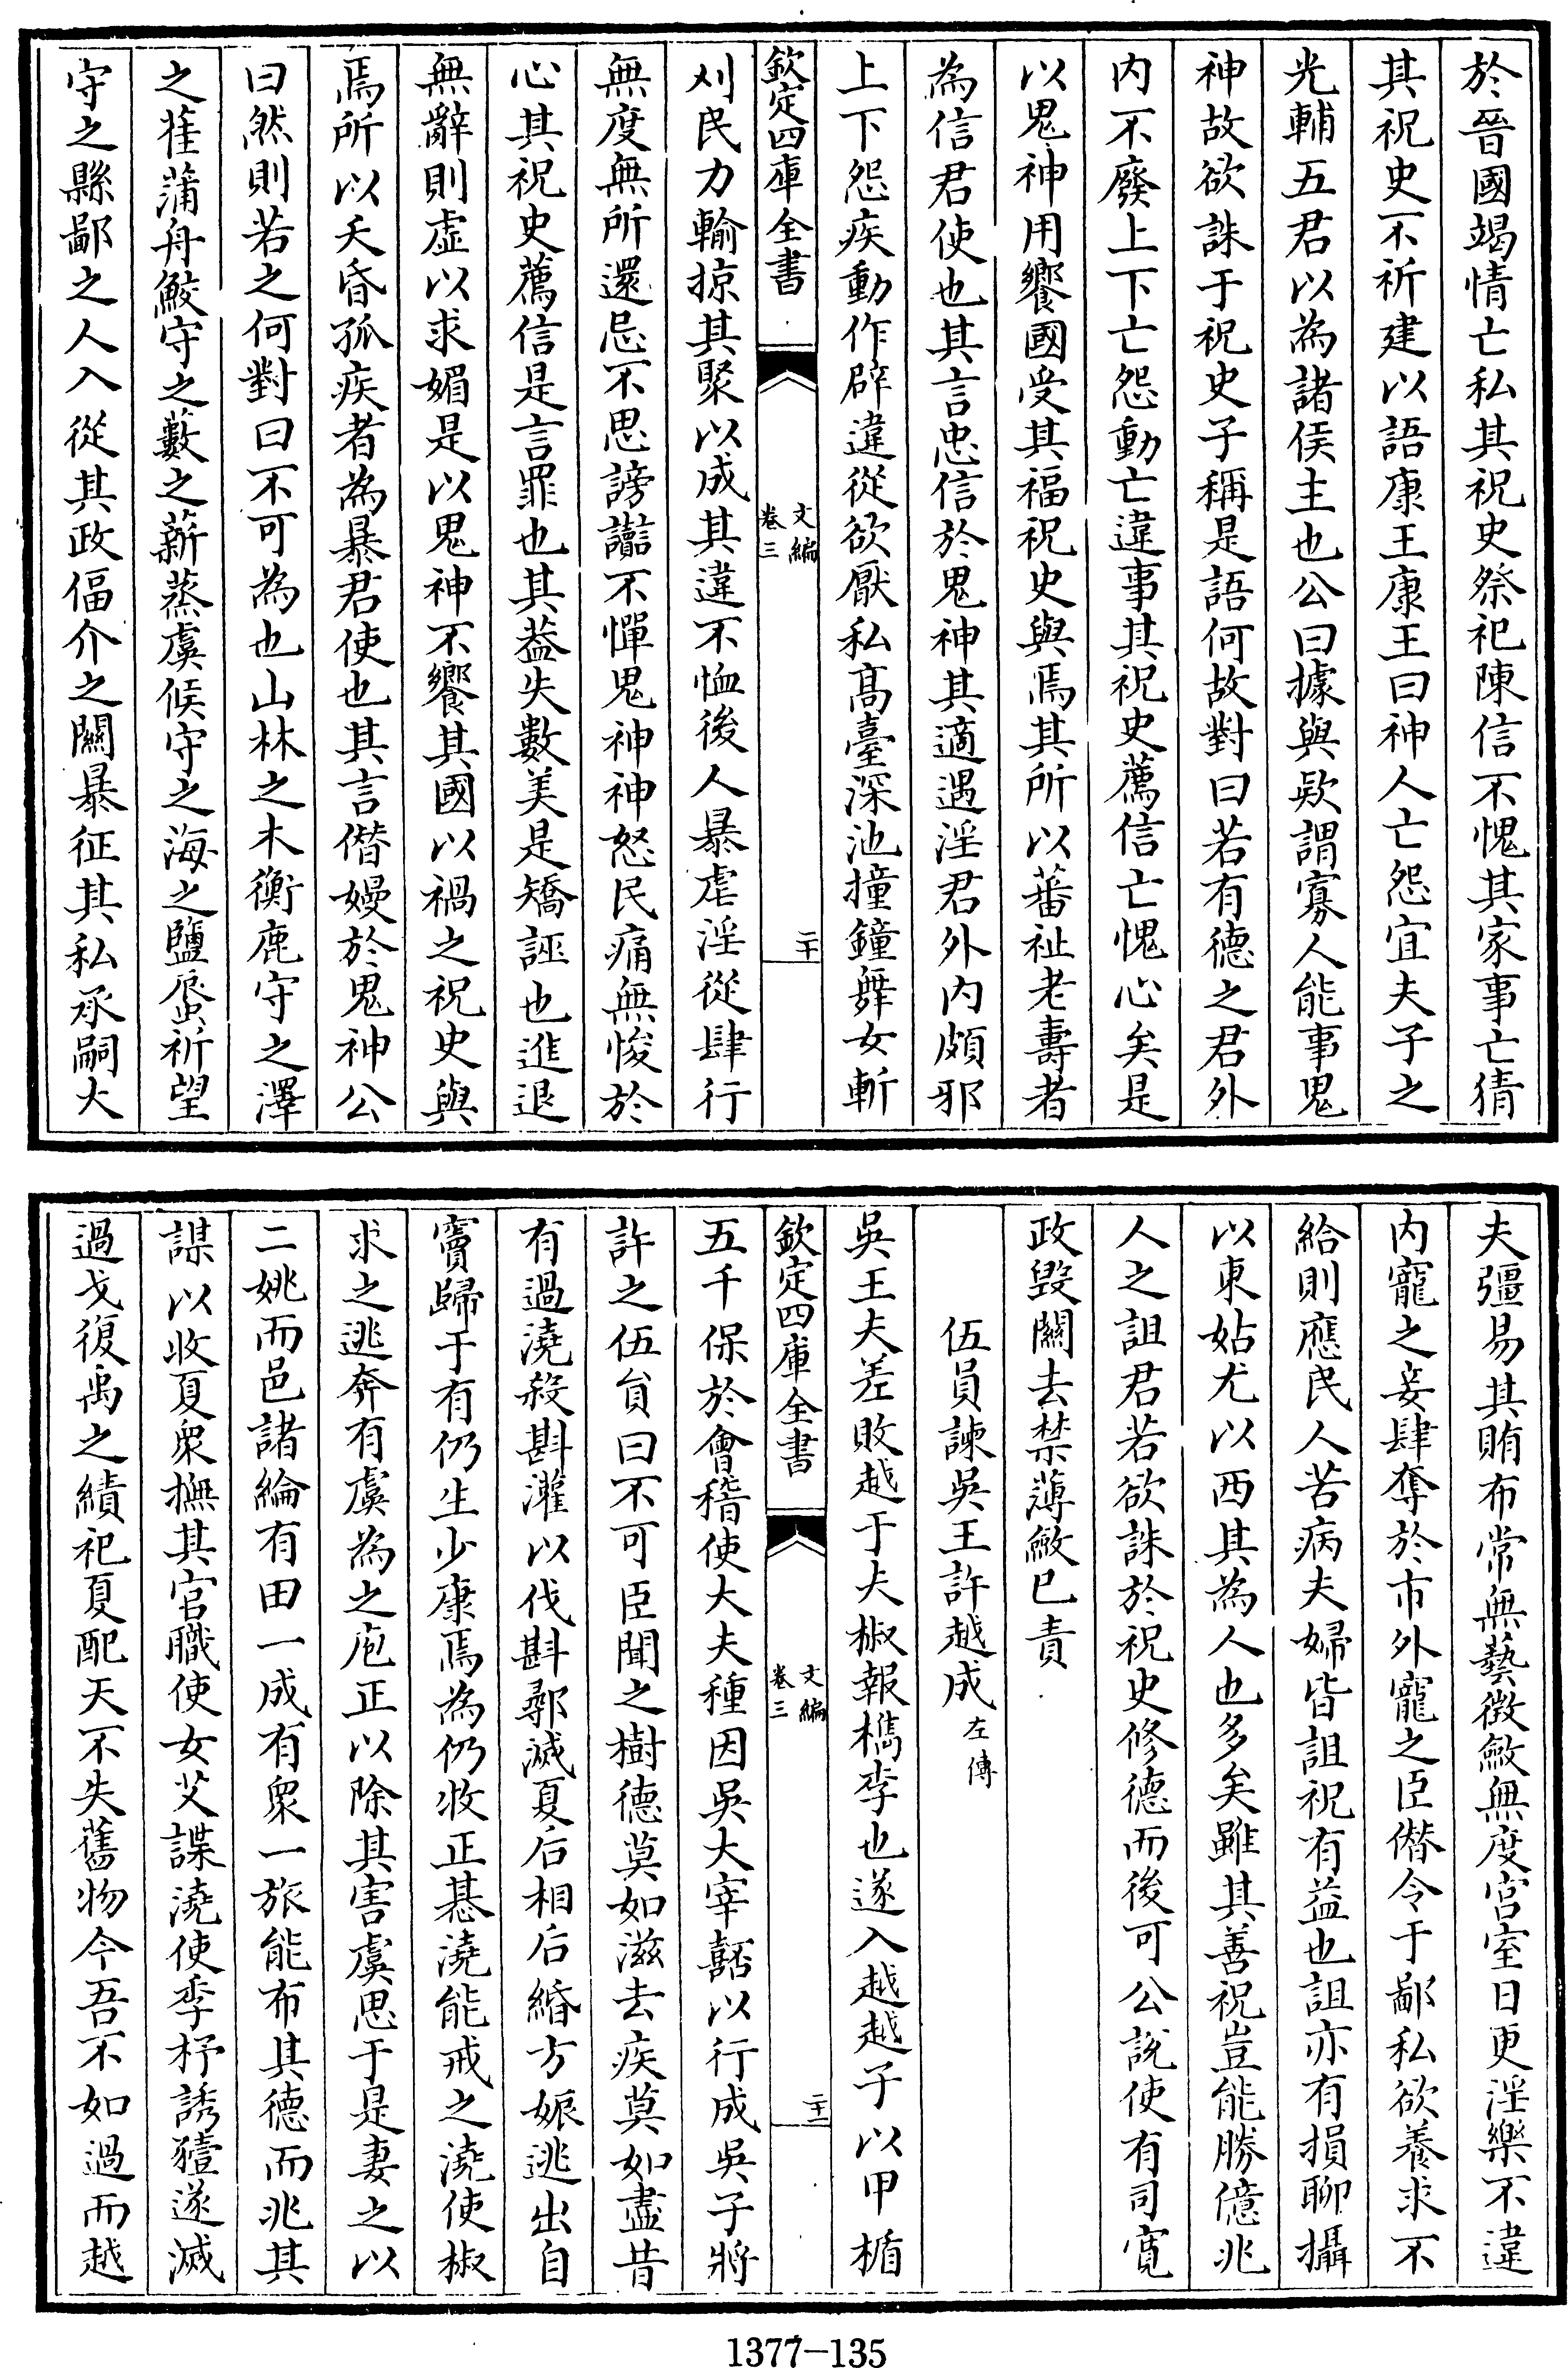 於晉國竭情亡私其祝史祭祀陳信不愧其家事亡猜
其祝史不祈建以語康王康王曰神人亡怨宜夫子之
光輔五君以為諸侯主也公曰據與欵謂寡人能事鬼
神故欲誅于祝史子稱是語何故對曰若有德之君外
内不廢上下亡怨動亡違事其祝史薦信亡愧心矣是
以鬼神用饗國受其福祝史與焉其所以蕃祉老壽者
為信君使也其言忠信於鬼神其適遇淫君外内頗邪
上下怨疾動作辟違從欲厭私髙臺深池撞鐘舞女斬
欽定四庫全書
文編
卷三
二十
刈民力輸掠其聚以成其違不恤後人暴虐淫從肆行
無度無所還忌不思謗讟不憚鬼神神怒民痛無悛於
心其祝史薦信是言罪也其葢失數美是矯誣也進退
無辭則虛以求媚是以鬼神不饗其國以禍之祝史與
焉所以夭昏孤疾者為暴君使也其言僭嫚於鬼神公
曰然則若之何對曰不可為也山林之木衡鹿守之澤
之萑蒲舟鮫守之藪之薪蒸虞候守之海之鹽蜃祈望
守之縣鄙之人入從其政偪介之關暴征其私承嗣大
夫彊易其賄布常無藝徴斂無度宫室日更淫樂不違
内寵之妾肆奪於市外寵之臣僭令于鄙私欲養求不
給則應民人苦病夫婦皆詛祝有益也詛亦有損聊攝
以東姑尤以西其為人也多矣雖其善祝豈能勝億兆
人之詛君若欲誅於祝史修德而後可公說使有司寛
政毁關去禁薄斂已責
伍員諫吳王許越成左傳
吳王夫差敗越于夫椒報檇李也遂入越越子以甲楯
欽定四庫全書
文編
卷三
二十一
五千保於會稽使大夫種因吳大宰嚭以行成吳子將
許之伍員曰不可臣聞之樹德莫如滋去疾莫如盡昔
有過澆殺斟灌以伐斟鄩滅夏后相后緡方娠逃出自
竇歸于有仍生少康焉為仍牧正惎澆能戒之澆使椒
求之逃奔有虞為之庖正以除其害虞思于是妻之以
二姚而邑諸綸有田一成有衆一旅能布其德而兆其
謀以收夏衆撫其官職使女艾諜澆使季杼誘豷遂滅
過戈復禹之績祀夏配天不失舊物今吾不如過而越
1377-135